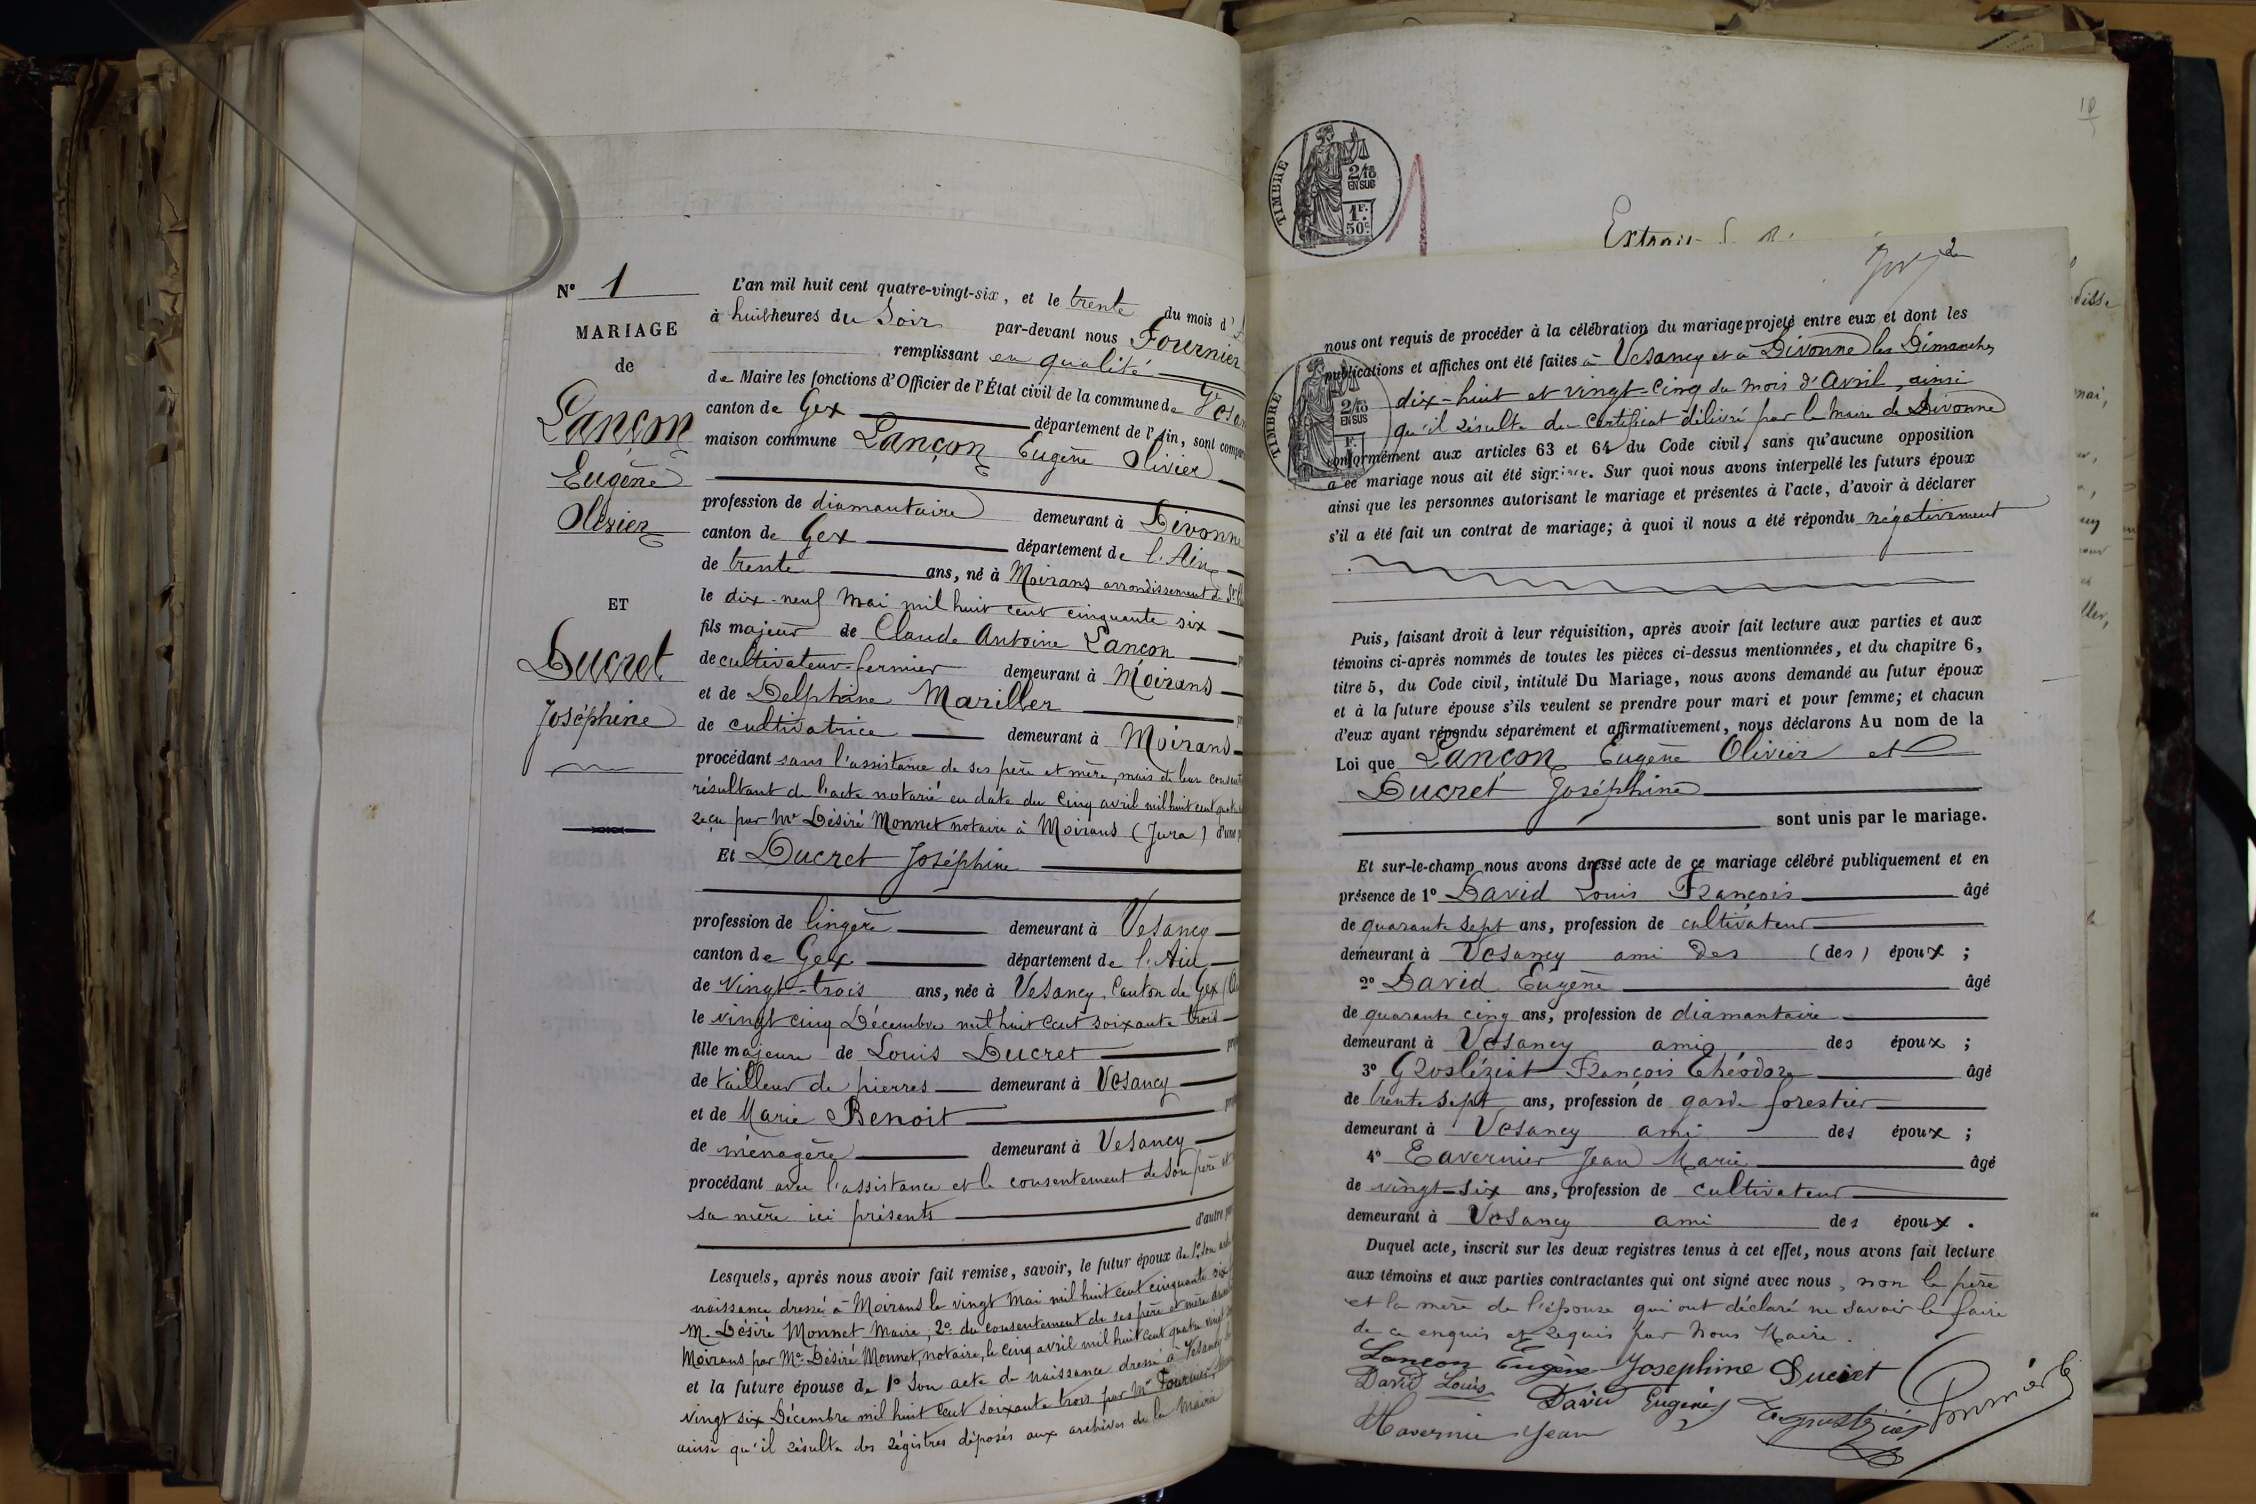 N° 1
MARIAGE
de
Lançon
Eugène
Olivier
ET
Ducret
Joséphine
L'an mil huit cent quatre-vingt-six, et le trente du mois d'
à huit heures du Soir par-devant nous Fournier
remplissant en qualité
de Maire les fonctions d'Officier de l'État civil de la commune de
canton de Gex département de l'Ain, sont
maison commune Lançon Eugène Olivier
profession de diamantaire demeurant à Divonne
canton de Gex département de l'Ain
de trente ans, né à Moirans arrondissement de
le dix-neuf Mai mil huit cent cinquante six
fils majeur de Claude Antoine Lançon
de cultivateur-fermier demeurant à Moirans
et de Delphine Mariller
de cultivatrice demeurant à Moirans
procédant sans l'assistance de ses père et mère, mais de leur
résultant de l'acte notarié en date du cinq avril mil huit cent
reçu par Mr Désiré Monnet notaire à Moirans (Jura) d'une
Et Ducret Joséphine
profession de lingère demeurant à Vesancy
canton de Gex département de l'Ain
de vingt-trois ans, née à Vesancy, Canton de Gex
le vingt cinq Décembre mil huit cent soixante trois
fille majeure de Louis Ducret
de tailleur de pierres demeurant à Vesancy
et de Marie Benoit
de ménagère demeurant à Vesancy
procédant avec l'assistance et le consentement de son père et
sa mère ici présents
d'autre
Lesquels, après nous avoir fait remise, savoir, le futur époux de 1° Son
naissance dressé à Moirans le vingt Mai mil huit cent cinquante six
M. Désiré Monnet Maire, 2° du consentement de ses père et mère
Moirans par Me Désiré Monnet, notaire, le cinq avril mil huit cent quatre vingt
et la future épouse de 1° Son acte de naissance dressé à Vesancy
vingt six Décembre mil huit cent soixante trois par Mr Fournier
ainsi qu'il résulte des régistres déposés aux archives de la Mairie
TIMBRE
2/10
EN SUS
1F.
50c
Extrait
TIMBRE
2/10
EN SUS
nous ont requis de procéder à la célébration du mariage projeté entre eux et dont les
publications et affiches ont été faites à Vesancy et à Divonne les Dimanches
dix-huit et vingt-cinq du mois d'Avril, ainsi
qu'il résulte du Certificat délivré par le Maire de Divonne
conformément aux articles 63 et 64 du Code civil, sans qu'aucune opposition
à ce mariage nous ait été signifiée. Sur quoi nous avons interpellé les futurs époux
ainsi que les personnes autorisant le mariage et présentes à l'acte, d'avoir à déclarer
s'il a été fait un contrat de mariage; à quoi il nous a été répondu négativement
Puis, faisant droit à leur réquisition, après avoir fait lecture aux parties et aux
témoins ci-après nommés de toutes les pièces ci-dessus mentionnées, et du chapitre 6,
titre 5, du Code civil, intitulé Du Mariage, nous avons demandé au futur époux
et à la future épouse s'ils veulent se prendre pour mari et pour femme; et chacun
d'eux ayant répondu séparément et affirmativement, nous déclarons Au nom de la
Loi que Lançon Eugène Olivier et
Ducret Joséphine
sont unis par le mariage.
Et sur-le-champ nous avons dressé acte de ce mariage célébré publiquement et en
présence de 1° David Louis François âgé
de quarante sept ans, profession de cultivateur
demeurant à Vesancy ami des (des) époux ;
2° David Eugène âgé
de quarante cinq ans, profession de diamantaire
demeurant à Vesancy ami des époux ;
3° Grosléziat François Théodore âgé
de trente sept ans, profession de garde forestier
demeurant à Vesancy ami des époux ;
4° Tavernier Jean Marie âgé
de vingt-six ans, profession de cultivateur
demeurant à Vesancy ami des époux .
Duquel acte, inscrit sur les deux registres tenus à cet effet, nous avons fait lecture
aux témoins et aux parties contractantes qui ont signé avec nous, non le père
et la mère de l'épouse qui ont déclaré ne savoir le faire
de ce enquis et requis par Nous Maire.
Lançon Eugène Josephine Ducret
David Louis David Eugène
Tavernier Jean